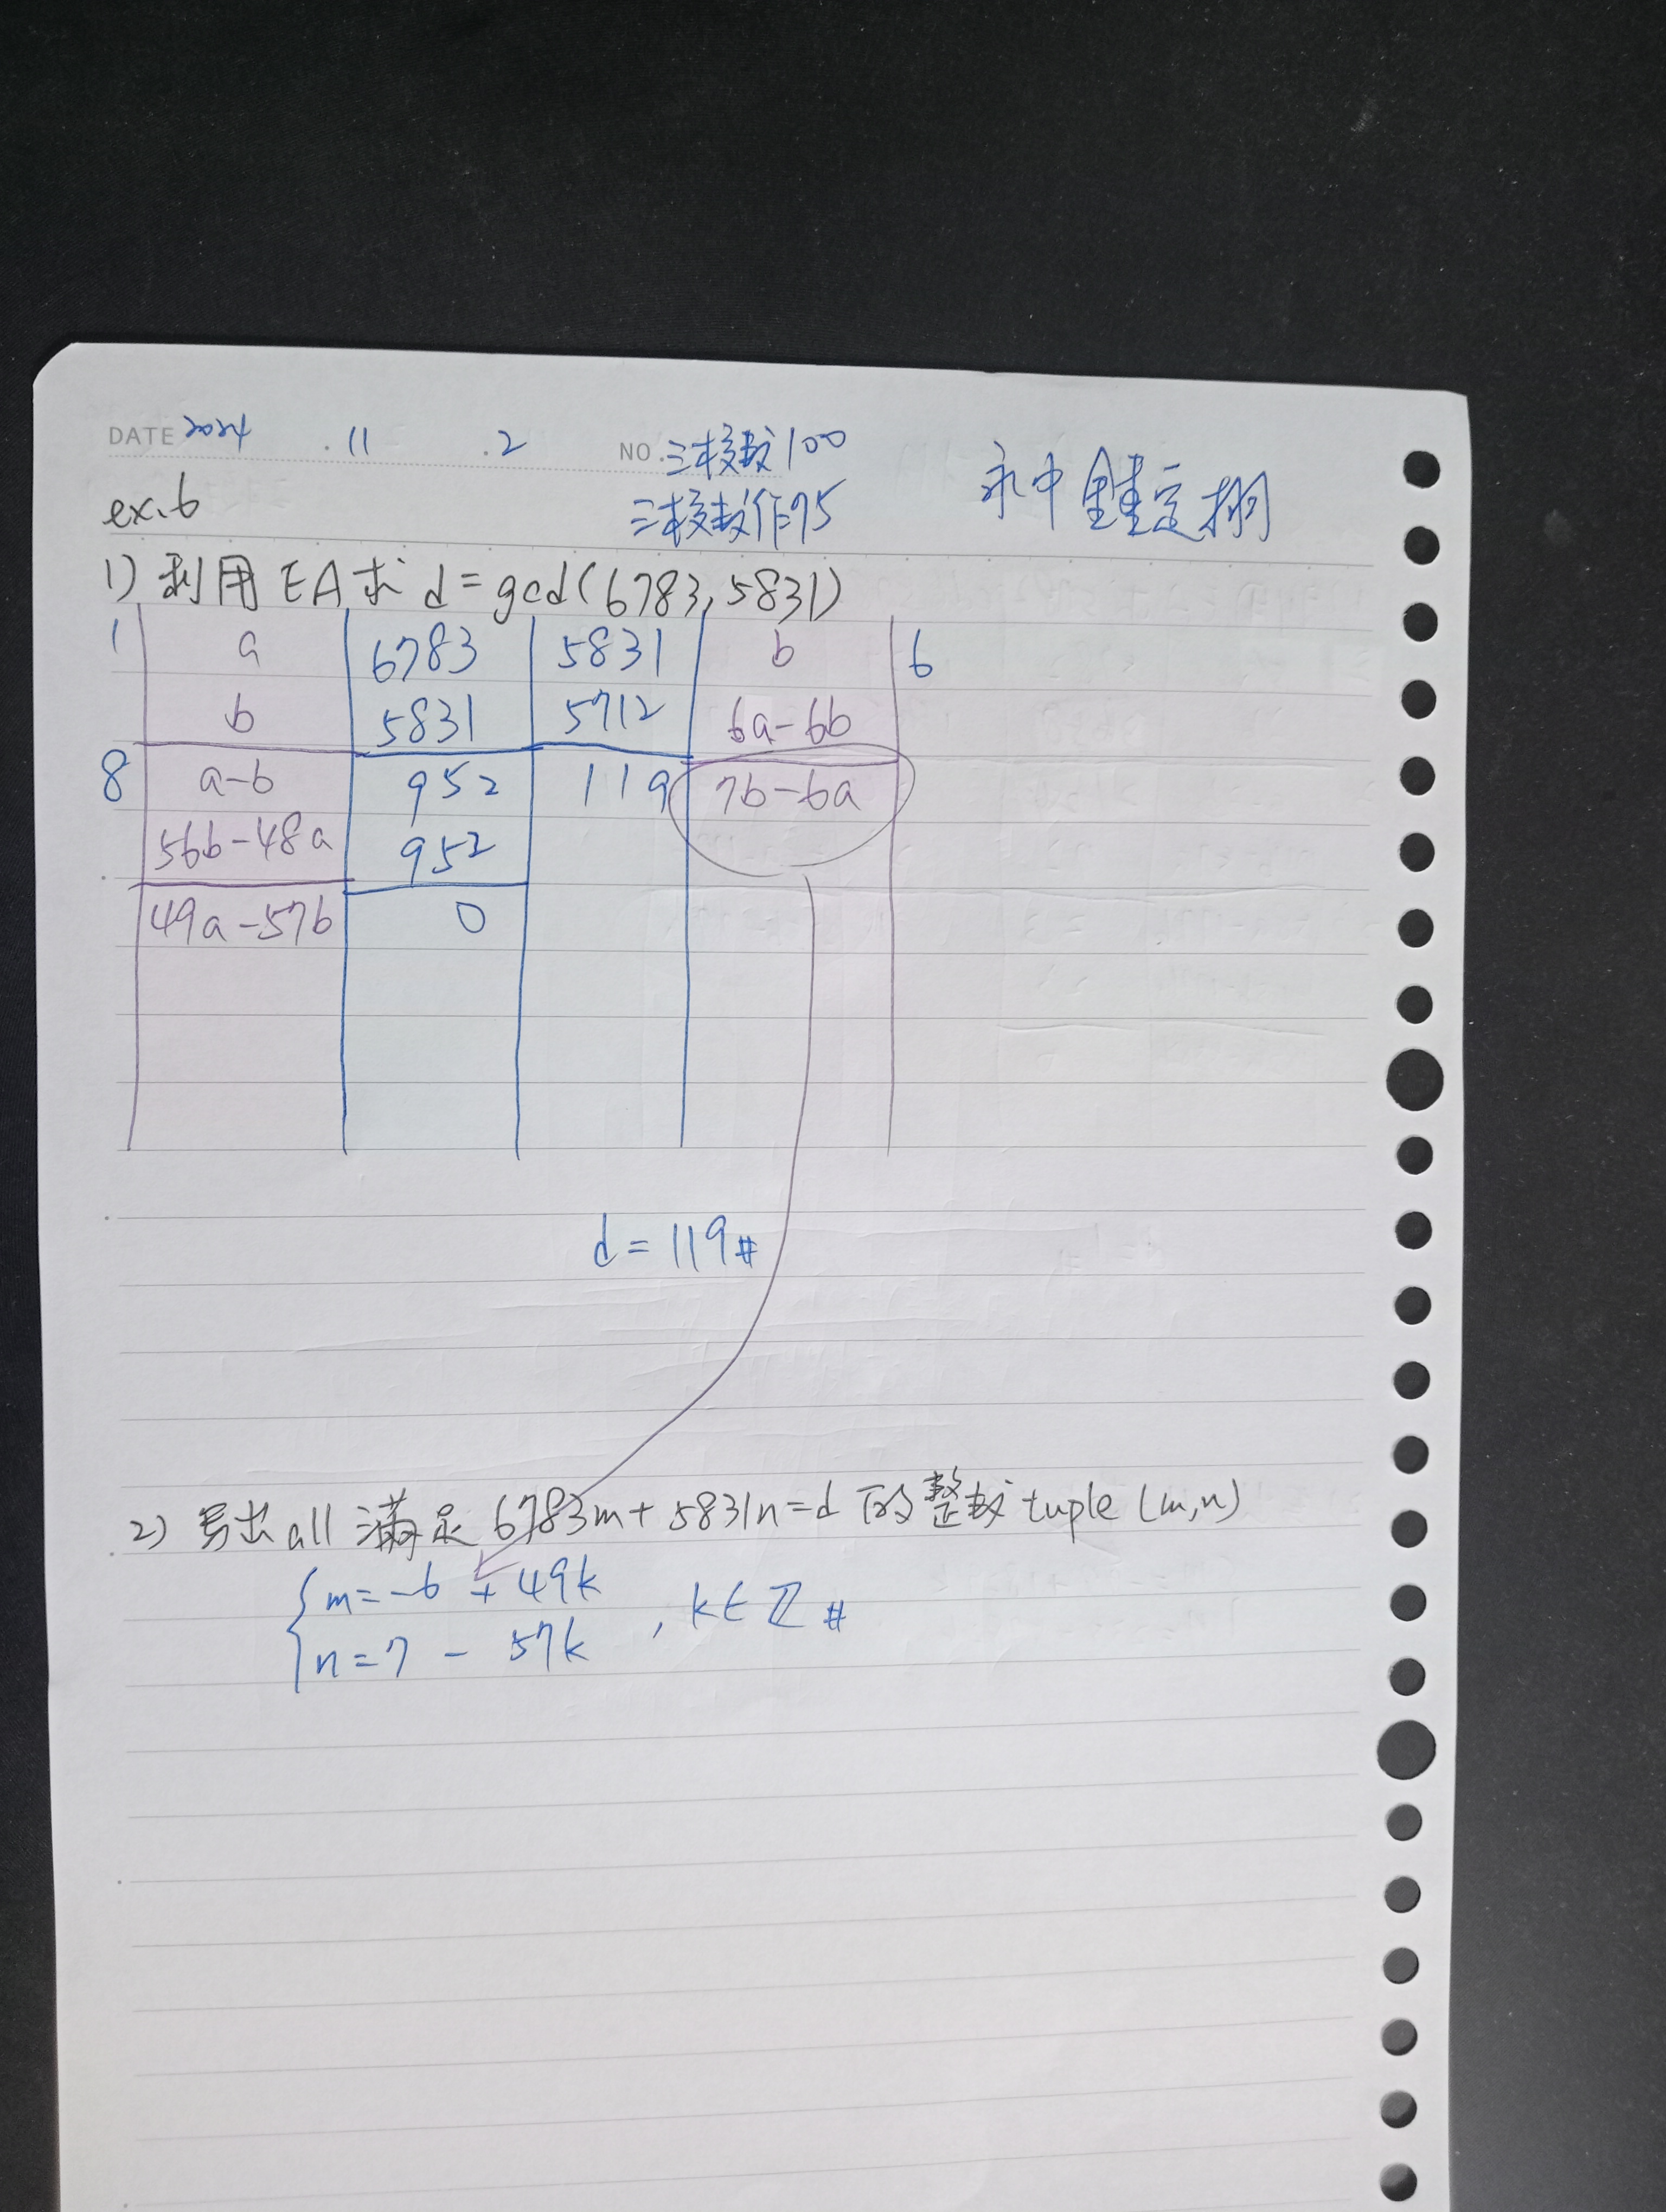 DATE 2024 . 11 . 2 NO. 三校数 100
三校数作 75
永中 鍾定栩
ex.6
1) 利用 EA 求 d = gcd(6783, 5831)
1 a 6783 5831 b 6
b 5831 5712 6a-6b
8 a-b 952 119 7b-6a
56b-48a 952
49a-57b 0
d = 119 #
2) 写出 all 滿足 6783m + 5831n = d 的整数 tuple (m,n)
{ m = -6 + 49k
n = 7 - 57k , k ∈ ℤ #